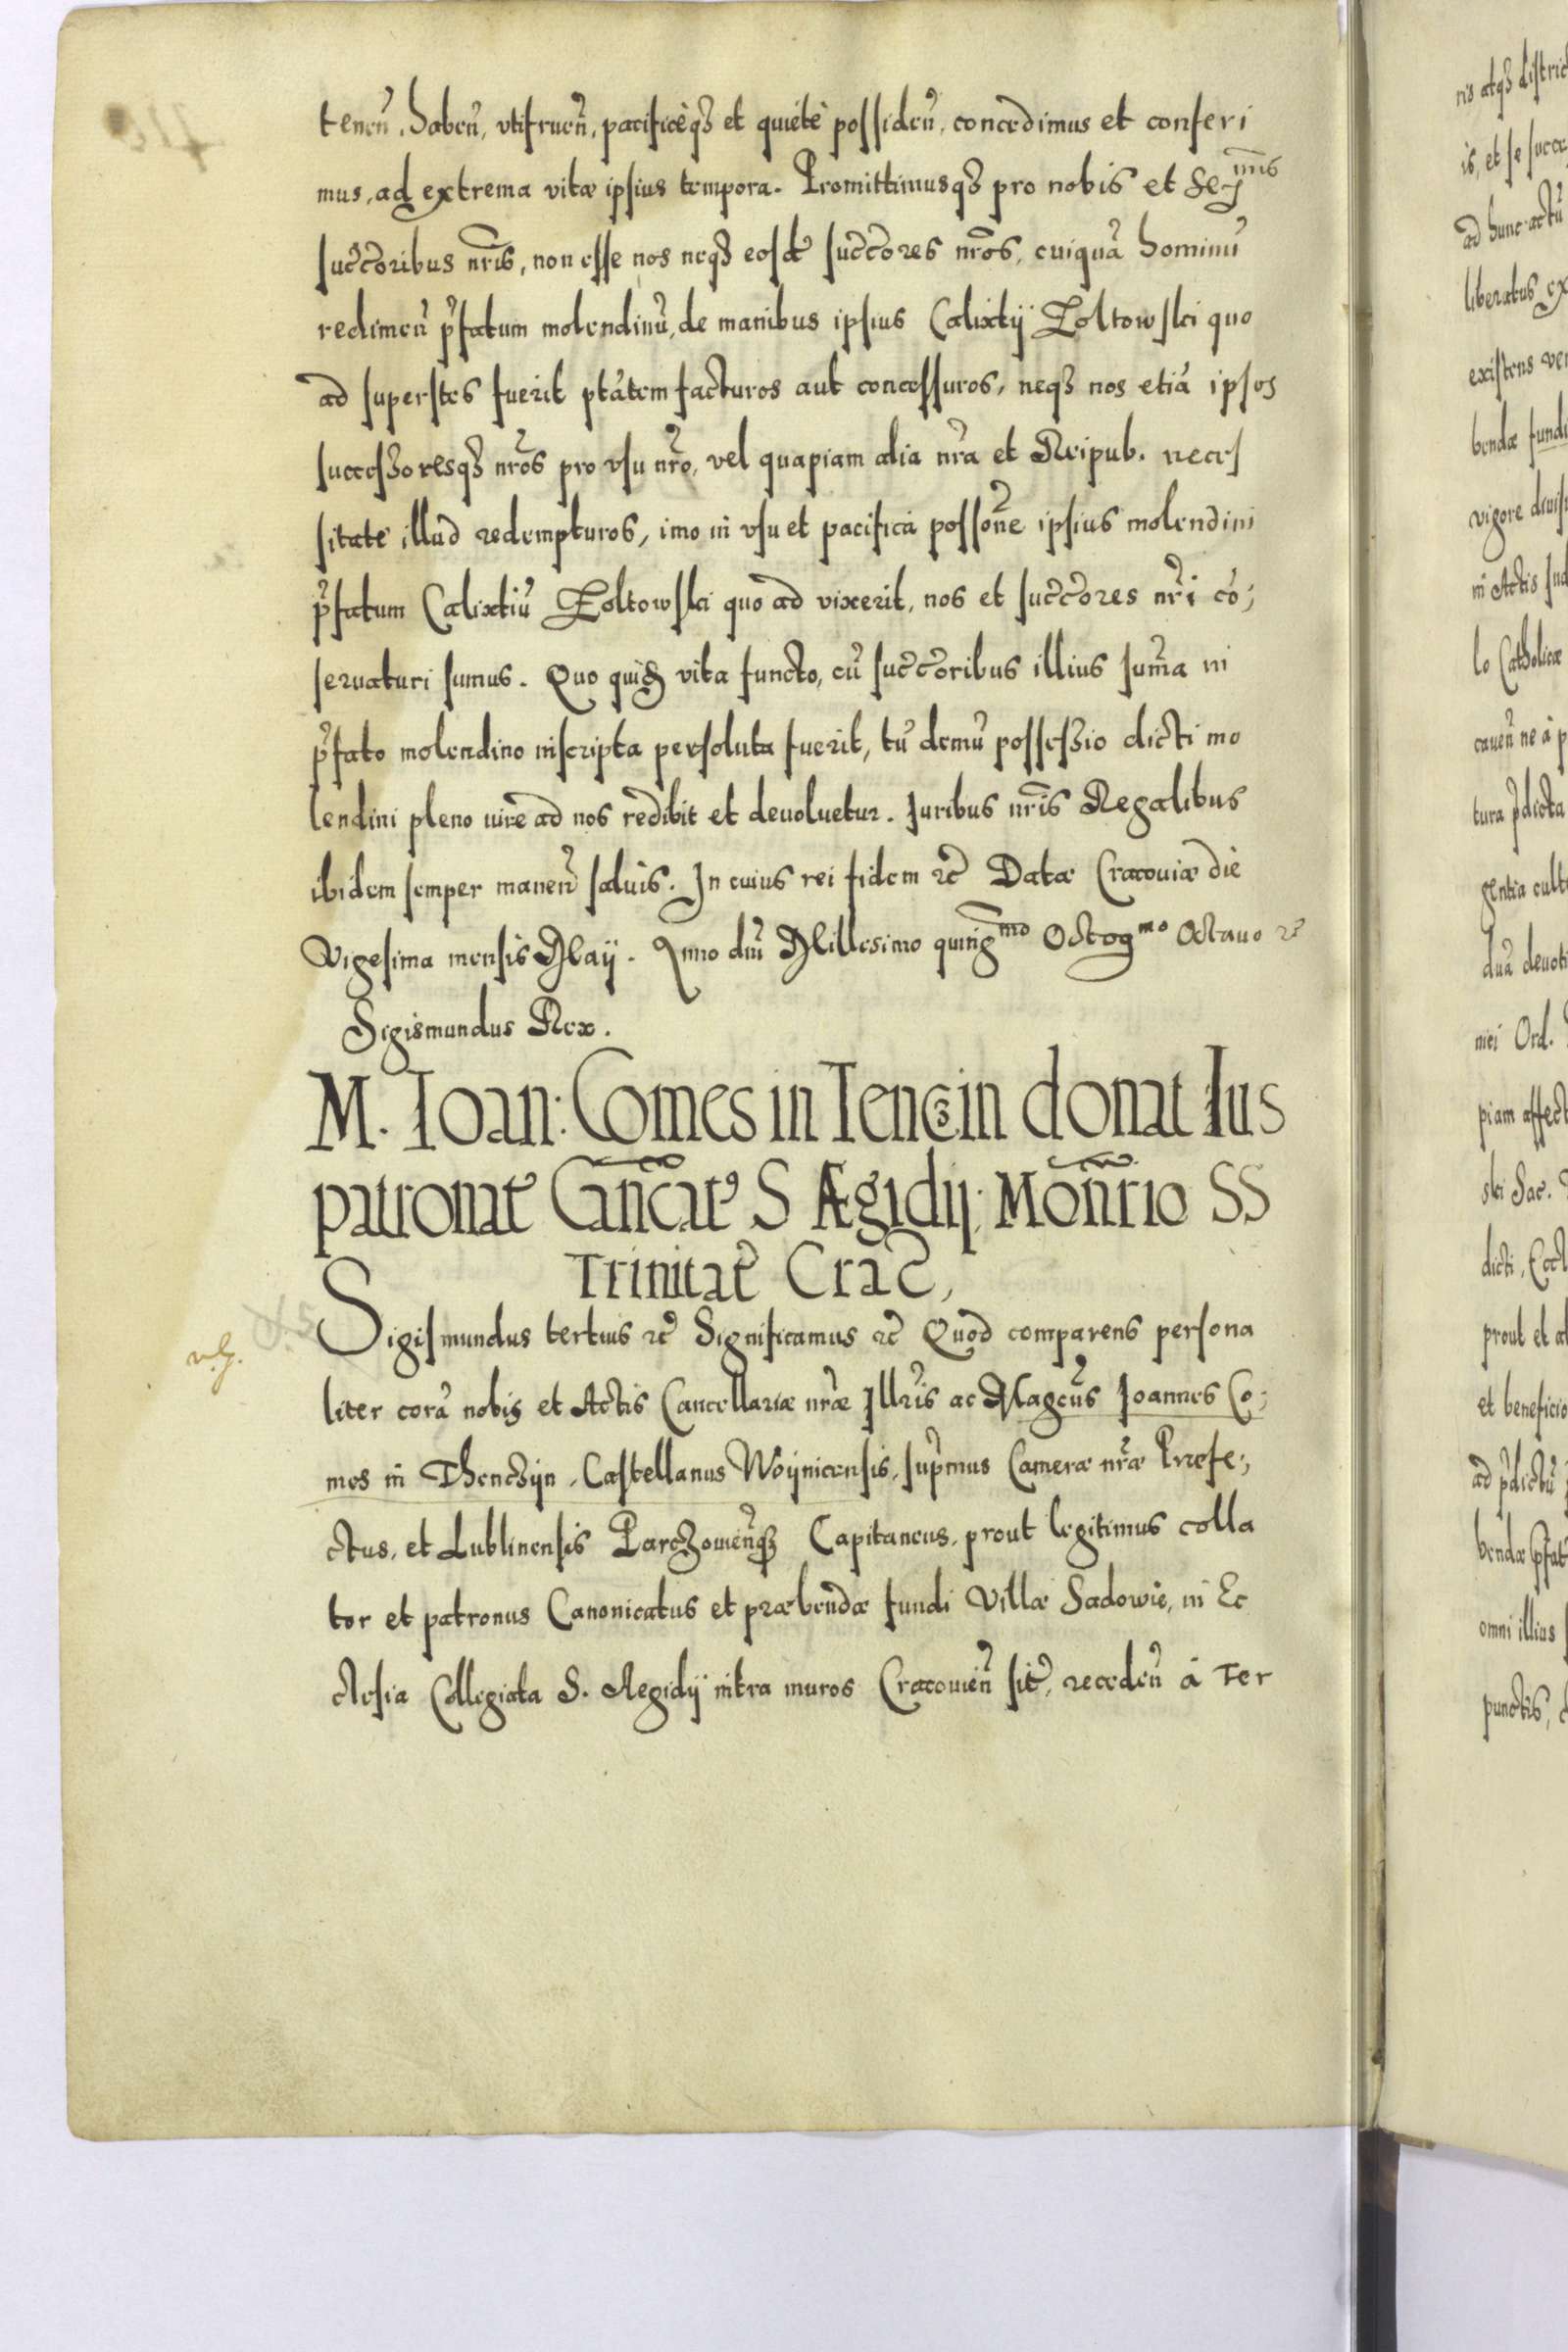 tenen̄, haben̄, vtifruen̄, pacificèq₃ et quiétè possiden̄, concedimus et conferi
mus, ad extrema vitæ ipsius tempora. Promittimusq₃ pro nobis et Ser^mis
succ̄oribus nr̄is, non esse nos neq₃ eosd̄ succ̄ores nr̄os, cuiquā hominū
redimen̄ p̄fatum molendinū, de manibus ipsius Calixtij Zoltowski quo
ad superstes fuerit ptātem facturos aut concessuros, neq₃ nos etiā ipsos
successoresq₃ nr̄os pro vsu nr̄o, vel quapiam alia nr̄a et Reipub. neces
sitate illud redempturos, imo in vsu et pacifica possōne ipsius molendini
p̄fatum Calixtiū Zoltowski quo ad vixerit, nos et succ̄ores nr̄i cō,
seruaturi sumus. Quo quid₃ vita functo, cū succ̄oribus illius sum̄a in
p̄fato molendino inscripta persoluta fuerit, tū demū possessio dicti mo
lendini pleno iure ad nos redibit et deuoluetur. Iuribus nr̄is Regalibus
ibidem semper manen̄ saluis. In cuius rei fidem ꝛc̄ Datæ Cracouiæ die
Vigesima mensis Maij. Anno dn̄i Millesimo quing^mo Octog^mo Octauo ꝛc̄
Sigismundus Rex.
M. Ioan: Comes in Tenczin donat Ius
patronat⁹ Can̄cat⁹ S Ægidij: Mōnrio SS
Trinitat̄ Crac̄,
v.g.
Sigismundus tertius ꝛc̄ Significamus ꝛc̄ Quod comparens persona
liter corā nobis et Actis Cancellariæ nr̄æ Illr̄is ac Magcūs Ioannes Co,
mes in Thenczijn, Castellanus Woijnicensis, sup̄mus Cameræ nr̄æ Præfe,
ctus, et Lublinensis Parczouien̄q₃ Capitaneus, prout legitimus colla
tor et patronus Canonicatus et præbendæ fundi Villæ Sadowie, in Ec
clesia Collegiata S. Aegidij intra muros Cracouien̄ sit̄, receden̄ á Ter
ris atq₃
is, et se
ad hunc actū
liberatus ex
existens
bendæ fundi
vigore
in Actis
lo Catholicæ
cauen̄ ne á p
tura p̄dicta
gentia
duā
mei Ord.
piam
ski Sac.
dicti,
prout et
et beneficio
ad p̄dictū
bendæ
omni illius
punctis,